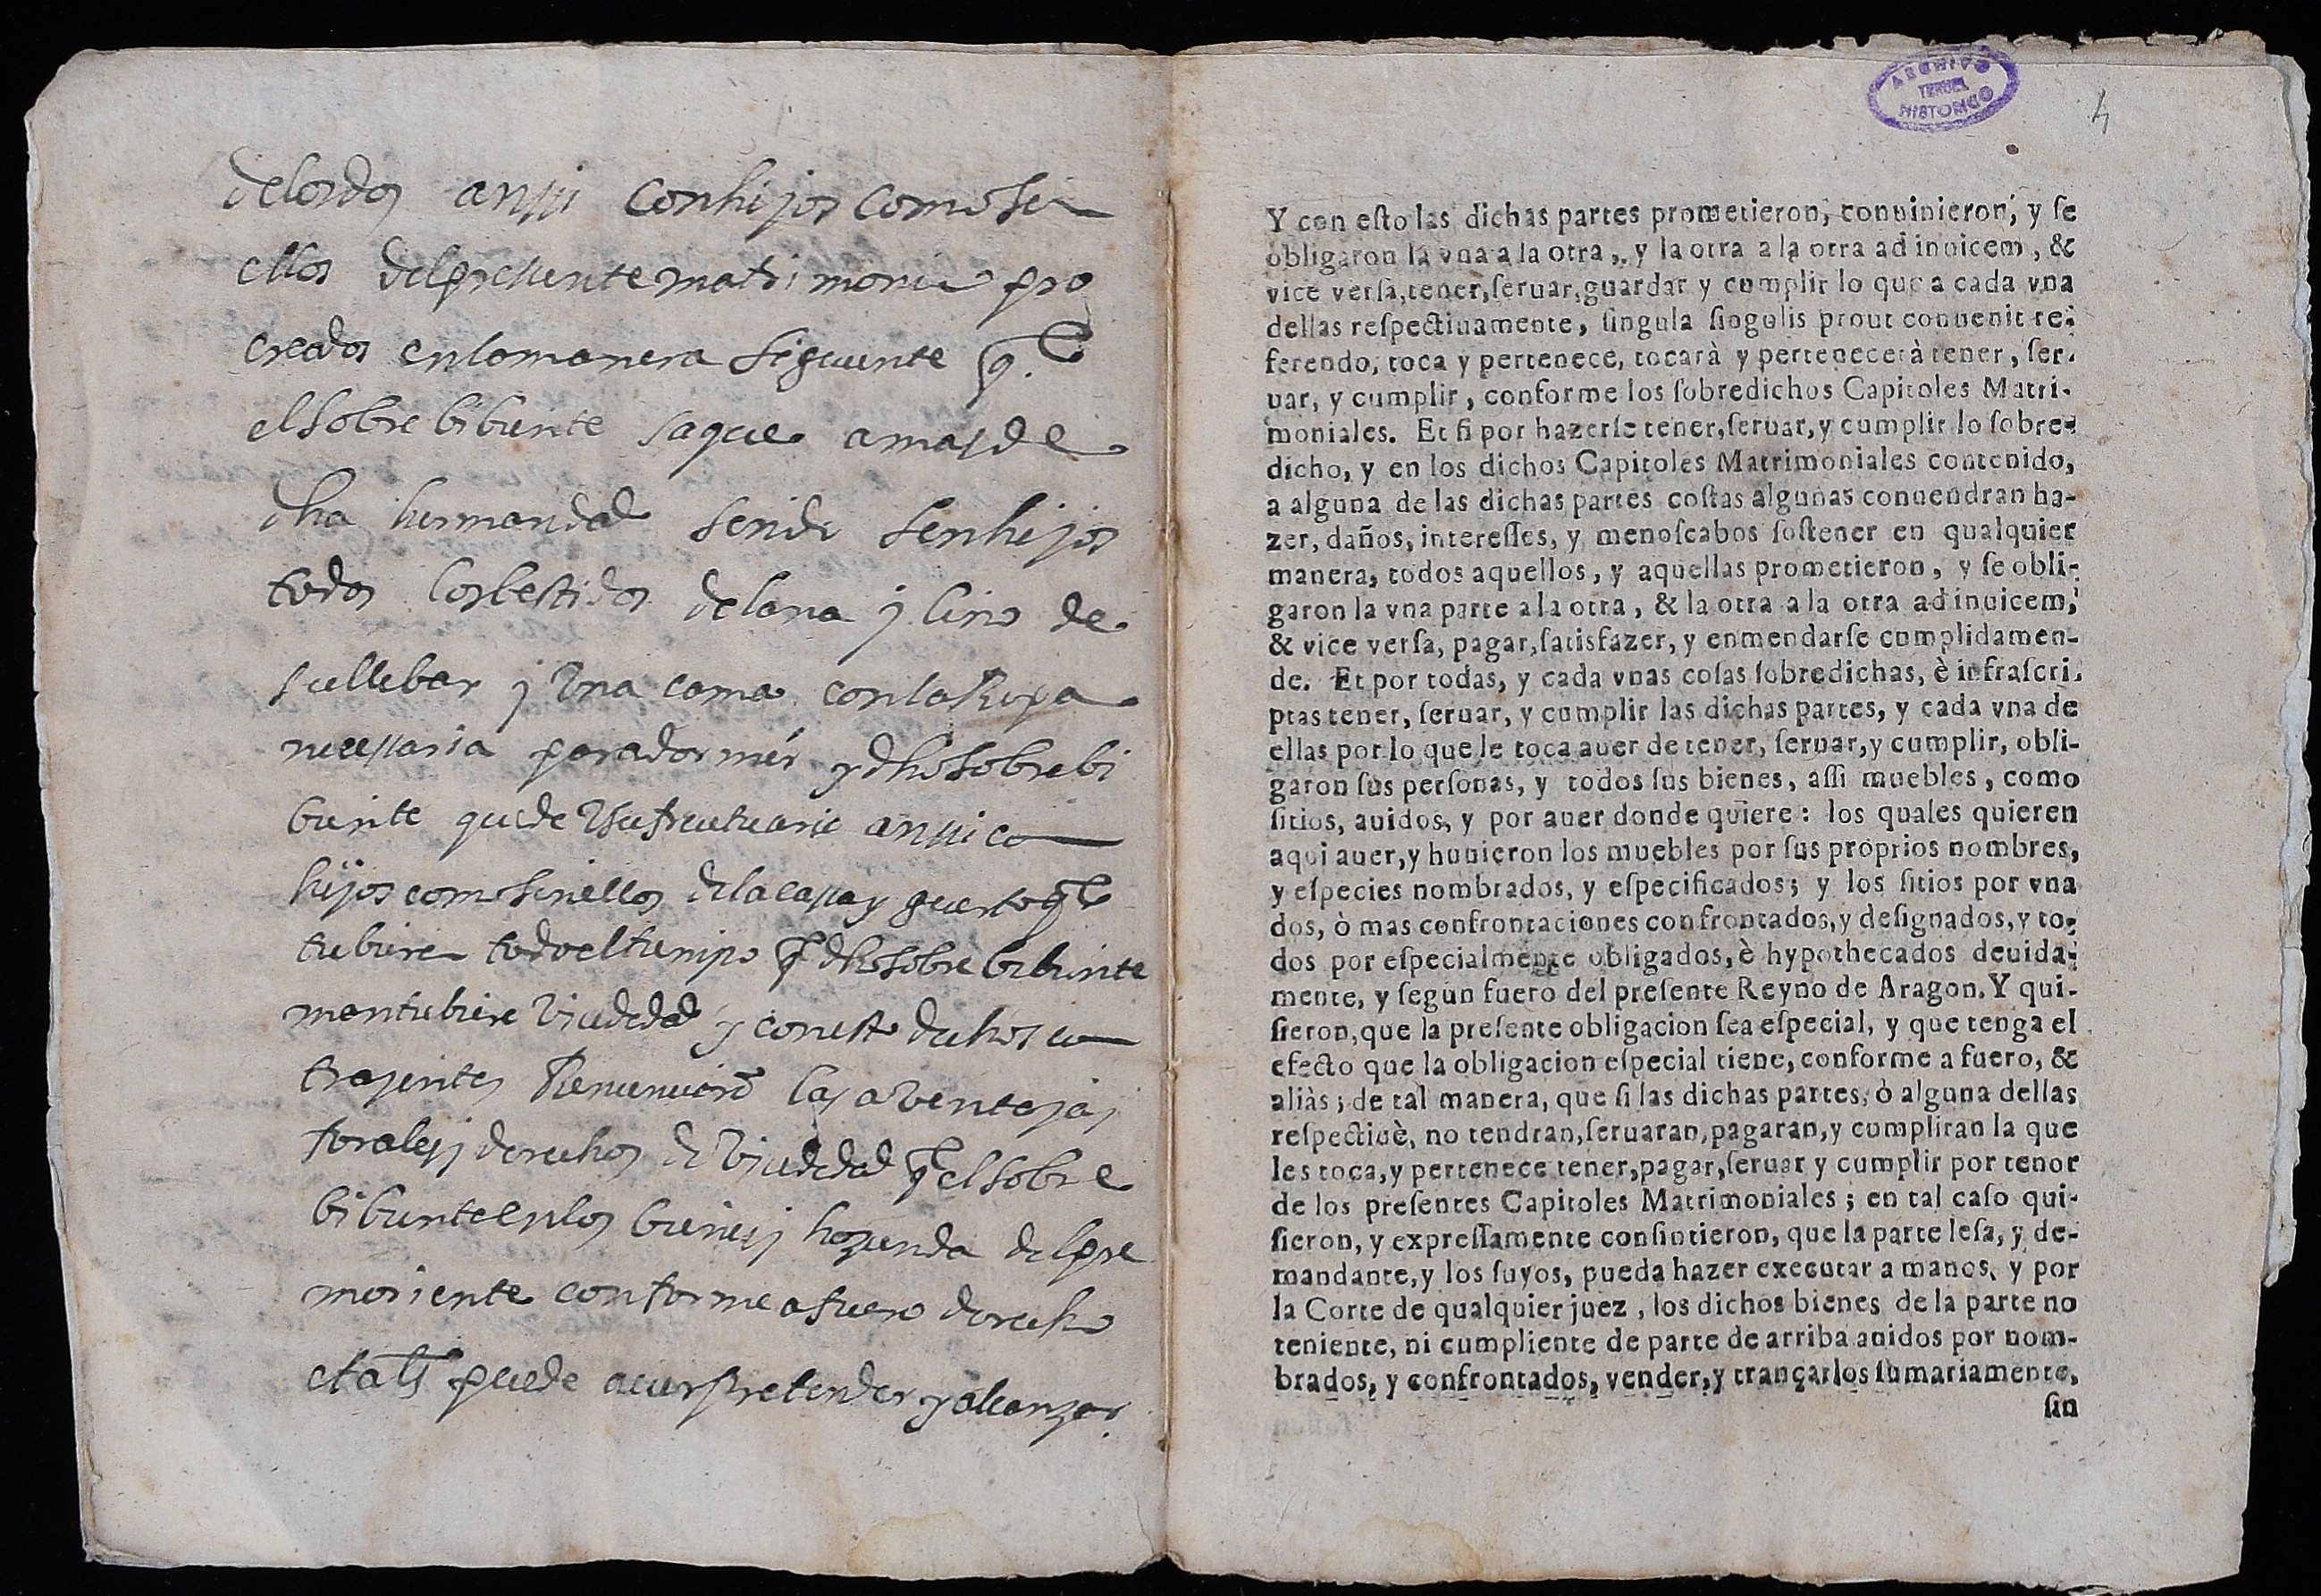 delos dos anssi con hijos como sin
ellos del pressente matrimonio pro
creados en lo manera siguiente q.e
el sobrebibiente saque a mas de
dha hermandad siendo sen hijos
todos los bestidos de lana y lino de
su llebar y Una cama con la Ropa
necessaria para dormir y dho sobrebi
biente quede Usufrutuario anssi co
hijos como sin ellos de la cassa y guerto q.e
tubiere todo el tiempo q dho sobrebibiente
mantubiere Viudedad y con esto dichos con
trayentes Renunciarō las aventajas
forales y derechos de Viudedad q el sobre
bibiente en los bienes y hazienda del pre
moriente conforme a fuero derecho
et als puede aver pretender y alcanzar.
ARCHIVO
TERUEL
HISTORICO
4
Y con eſto las dichas partes prometieron, conuinieron, y ſe
obligaron la vna a la otra, y la otra a la otra ad inuicem, &
vice verſa, tener, ſeruar, guardar y cumplir lo que a cada vna
dellas reſpectiuamente, ſingula ſingulis prout conuenit re-
ferendo, toca y pertenece, tocarà y pertenecerà tener, ſer-
uar, y cumplir, conforme los ſobredichos Capitoles Matri-
moniales. Et ſi por hazerſe tener, ſeruar, y cumplir lo ſobre-
dicho, y en los dichos Capitoles Matrimoniales contenido,
a alguna de las dichas partes coſtas algunas conuendran ha-
zer, daños, intereſſes, y menoſcabos ſoſtener en qualquier
manera, todos aquellos, y aquellas prometieron, y ſe obli-
garon la vna parte a la otra, & la otra a la otra ad inuicem,
& vice verſa, pagar, ſatisfazer, y enmendarſe cumplidamen-
de. Et por todas, y cada vnas coſas ſobredichas, è infraſcri-
ptas tener, ſeruar, y cumplir las dichas partes, y cada vna de
ellas por lo que le toca auer de tener, ſeruar, y cumplir, obli-
garon ſus perſonas, y todos ſus bienes, aſſi muebles, como
ſitios, auidos, y por auer donde quiere: los quales quieren
aqui auer, y huuieron los muebles por ſus proprios nombres,
y eſpecies nombrados, y eſpecificados; y los ſitios por vna
dos, ò mas confrontaciones confrontados, y deſignados, y to-
dos por eſpecialmente obligados, è hypothecados deuida-
mente, y ſegun fuero del preſente Reyno de Aragon. Y qui-
ſieron, que la preſente obligacion ſea eſpecial, y que tenga el
efecto que la obligacion eſpecial tiene, conforme a fuero, &
aliàs; de tal manera, que ſi las dichas partes, ò alguna dellas
reſpectiuè, no tendran, ſeruaran, pagaran, y cumpliran la que
les toca, y pertenece tener, pagar, ſeruar y cumplir por tenor
de los preſentes Capitoles Matrimoniales; en tal caſo qui-
ſieron, y expreſſamente conſintieron, que la parte leſa, y de-
mandante, y los ſuyos, pueda hazer executar a manos, y por
la Corte de qualquier juez, los dichos bienes de la parte no
teniente, ni cumpliente de parte de arriba auidos por nom-
brados, y confrontados, vender, y trançarlos ſumariamente,
ſin